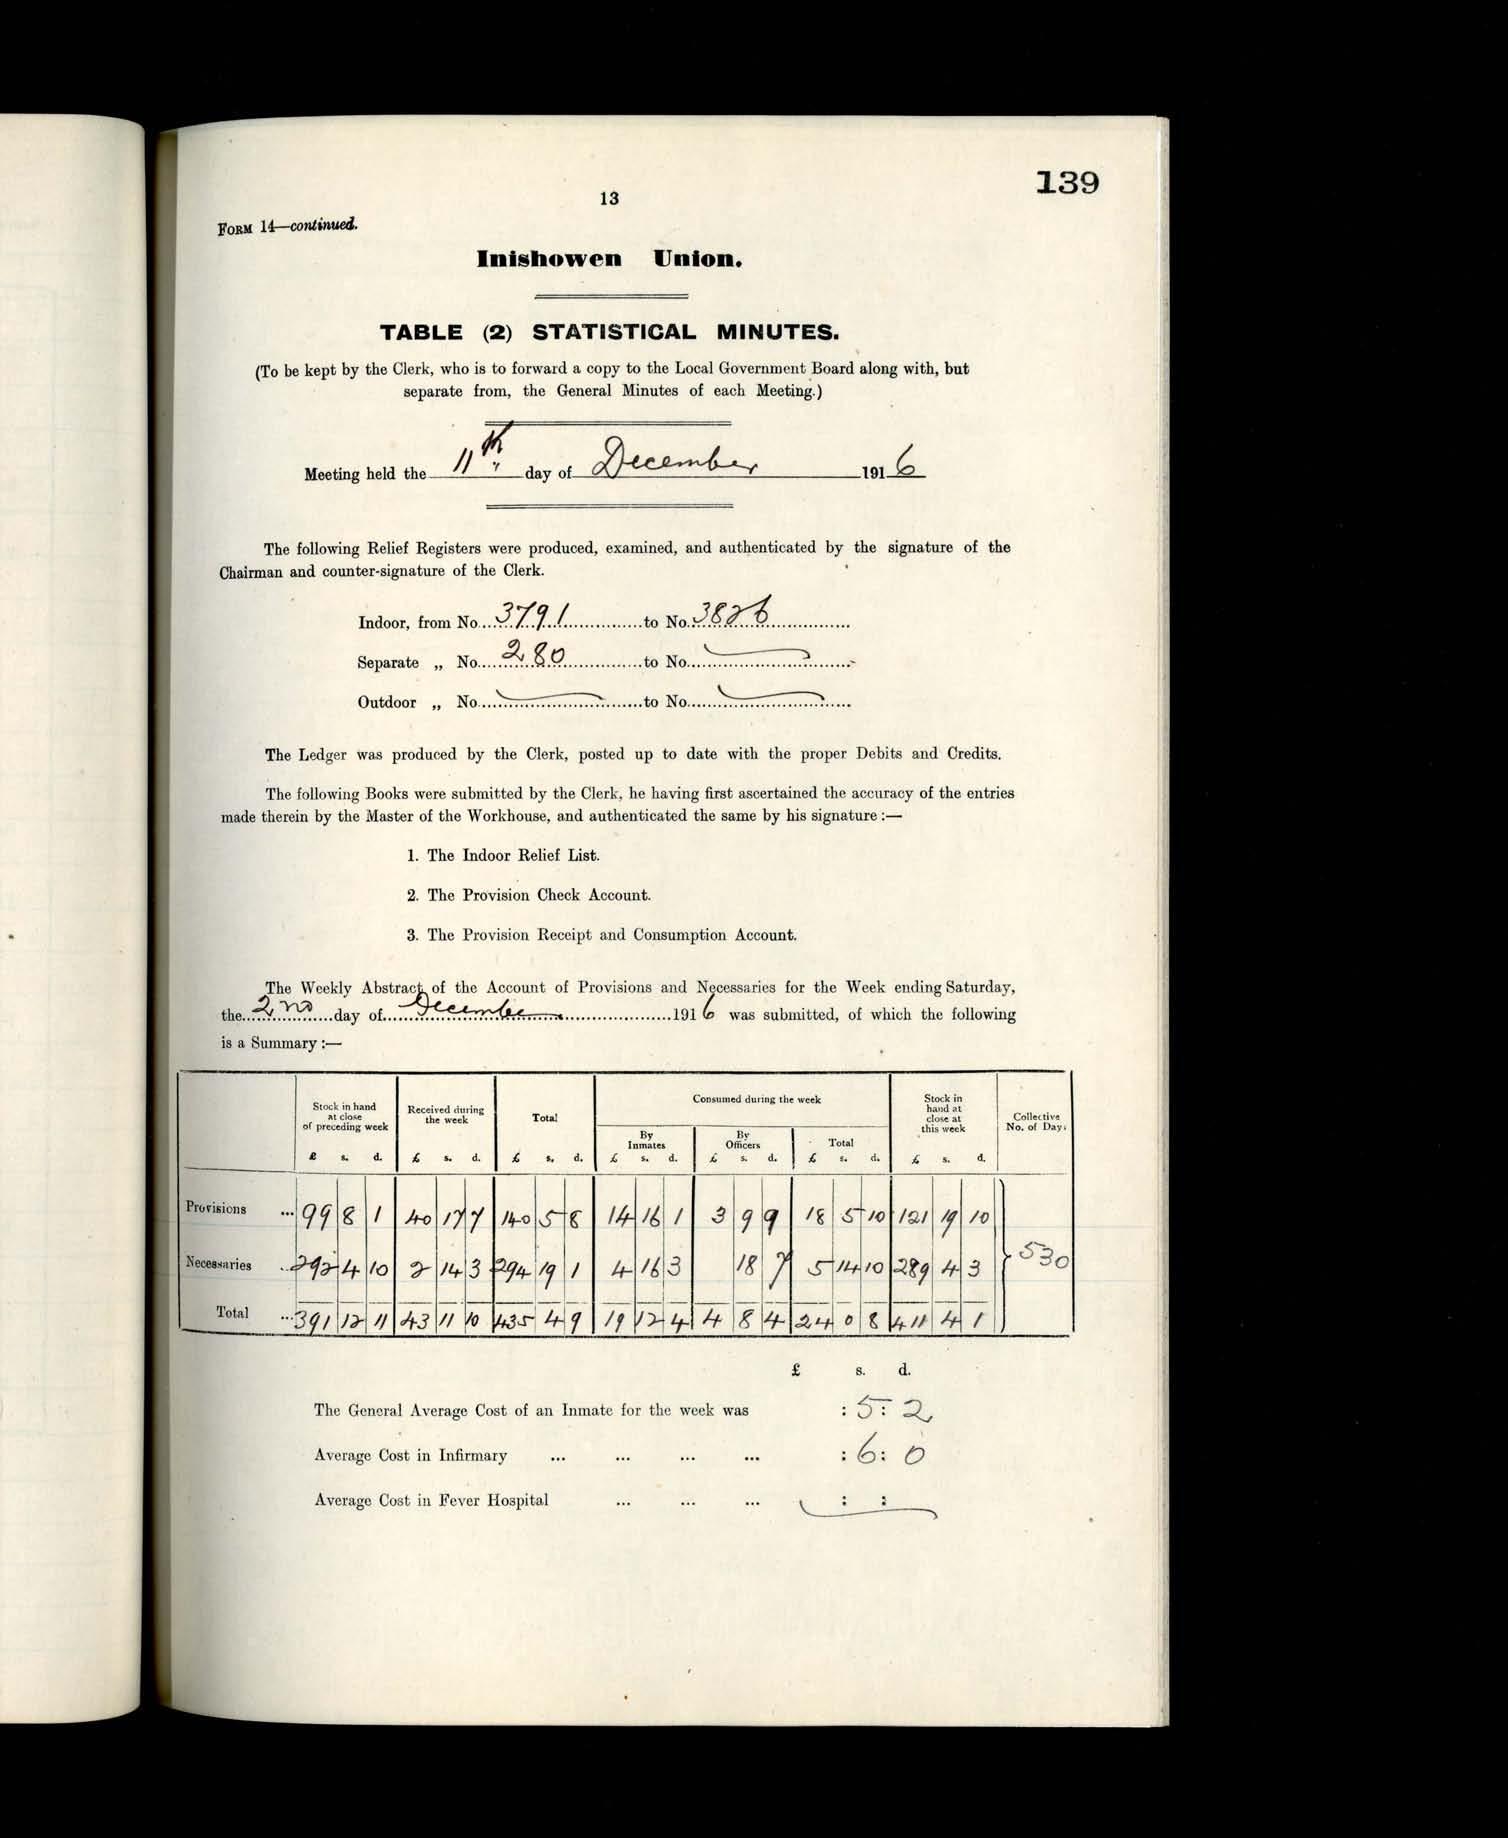 139
13
FORM 14—continued.
Inishowen Union.
TABLE (2) STATISTICAL MINUTES.
(To be kept by the Clerk, who is to forward a copy to the Local Government Board along with, but
separate from, the General Minutes of each Meeting.)
Meeting held the 11th day of December 1916
The following Relief Registers were produced, examined, and authenticated by the signature of the
Chairman and counter-signature of the Clerk.
Indoor, from No. 3791 to No. 3826
Separate „ No. 280 to No.
Outdoor „ No. to No.
The Ledger was produced by the Clerk, posted up to date with the proper Debits and Credits.
The following Books were submitted by the Clerk, he having first ascertained the accuracy of the entries
made therein by the Master of the Workhouse, and authenticated the same by his signature :—
1. The Indoor Relief List.
2. The Provision Check Account.
3. The Provision Receipt and Consumption Account.
The Weekly Abstract of the Account of Provisions and Necessaries for the Week ending Saturday,
the 2nd day of December 1916 was submitted, of which the following
is a Summary :—
Stock in hand at close of preceding week Received during the week Total Consumed during the week Stock in hand at close at this week Collective No. of Days
By Inmates By Officers Total
£ s. d. £ s. d. £ s. d. £ s. d. £ s. d. £ s. d. £ s. d.
Provisions ... 99 8 1 40 17 7 140 5 8 14 16 1 3 9 9 18 5 10 121 19 10
Necessaries .. 292 4 10 2 14 3 294 19 1 4 16 3 18 7 5 14 10 289 4 3 530
Total ... 391 12 11 43 11 10 435 4 9 19 12 4 4 8 4 24 0 8 411 4 1
£ s. d.
The General Average Cost of an Inmate for the week was : 5 : 2
Average Cost in Infirmary ... ... ... ... : 6 : 0
Average Cost in Fever Hospital ... ... ... : :